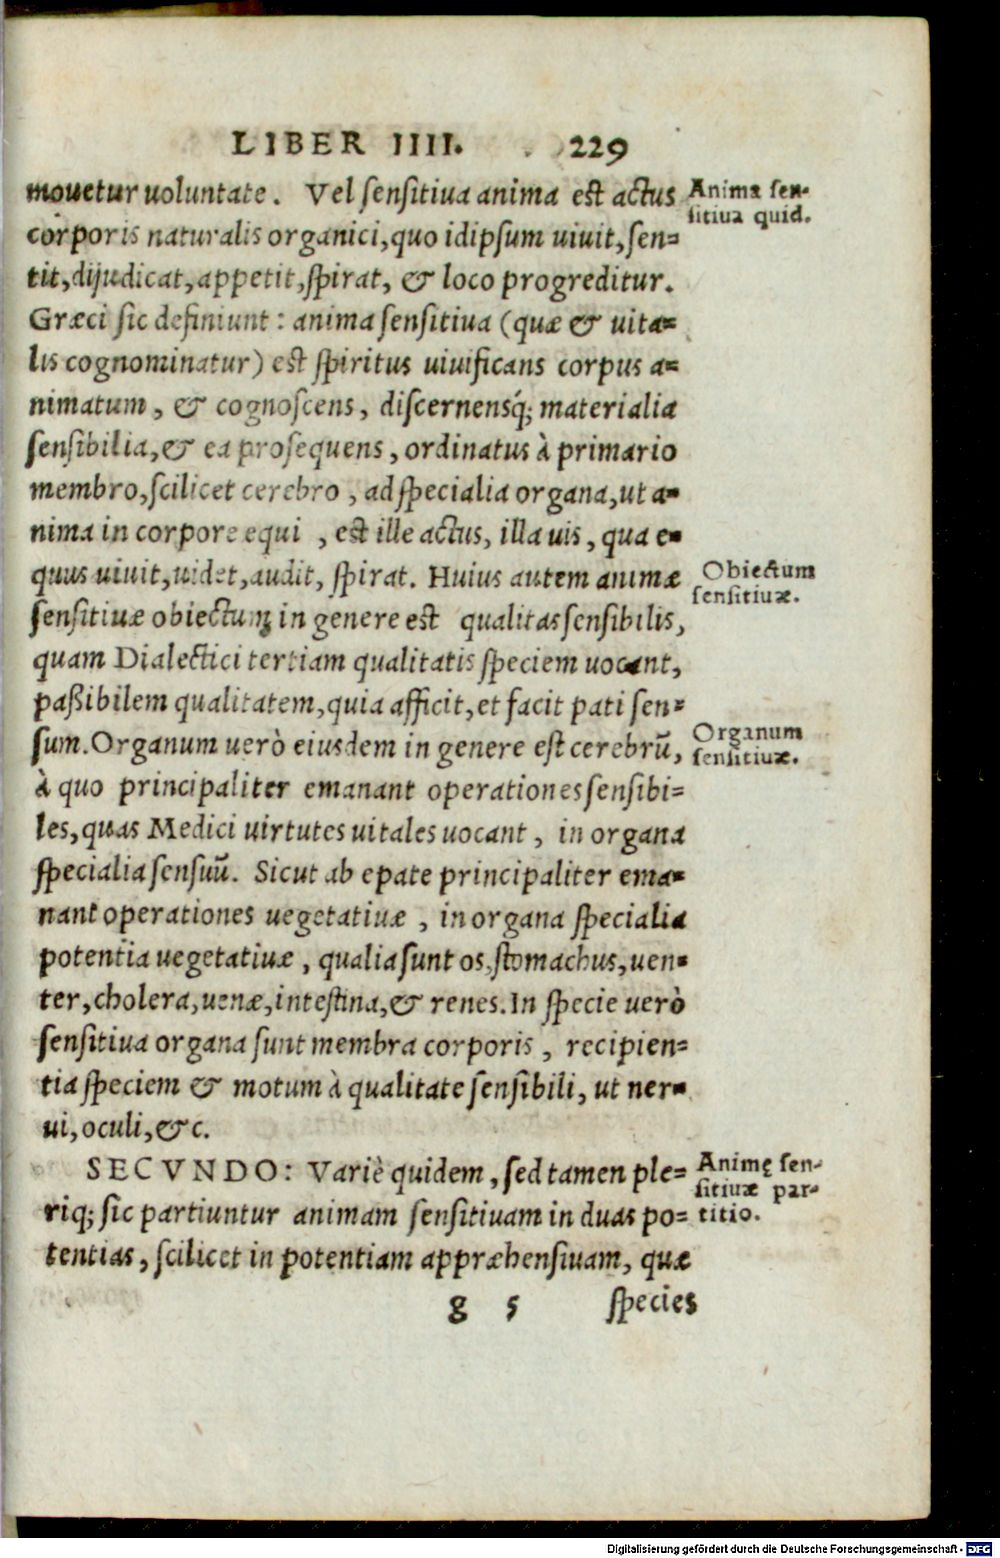 LIBER IIII. 229
mouetur uoluntate. Vel sensitiua anima est actus
Anima sen-
sitiua quid.
corporis naturalis organici, quo id ipsum uiuit, sen=
tit, dijudicat, appetit, spirat, & loco progreditur.
Græci sic definiunt: anima sensitiua (quæ & uita=
lis cognominatur) est spiritus uiuificans corpus a=
nimatum, & cognoscens, discernensq́; materialia
sensibilia, & ea prosequens, ordinatus à primario
membro, scilicet cerebro, ad specialia organa, ut a=
nima in corpore equi, est ille actus, illa uis, qua e=
quus uiuit, uidet, audit, spirat. Huius autem animæ
Obiectum
sensitiuæ.
sensitiuæ obiectum in genere est qualitas sensibilis,
quam Dialectici tertiam qualitatis speciem uocant,
paßibilem qualitatem, quia afficit, et facit pati sen=
sum. Organum uerò eiusdem in genere est cerebrũ,
Organum
sensitiuæ.
à quo principaliter emanant operationes sensibi=
les, quas Medici uirtutes uitales uocant, in organa
specialia sensuũ. Sicut ab epate principaliter ema=
nant operationes uegetatiuæ, in organa specialia
potentia uegetatiuæ, qualia sunt os, stomachus, uen=
ter, cholera, uenæ, intestina, & renes. In specie uerò
sensitiua organa sunt membra corporis, recipien=
tia speciem & motum à qualitate sensibili, ut ner=
ui, oculi, &c.
SECVNDO: Variè quidem, sed tamen ple=
Animę sen-
sitiuæ par-
titio.
riq; sic partiuntur animam sensitiuam in duas po=
tentias, scilicet in potentiam appræhensiuam, quæ
g 5 species
Digitalisierung gefördert durch die Deutsche Forschungsgemeinschaft - DFG